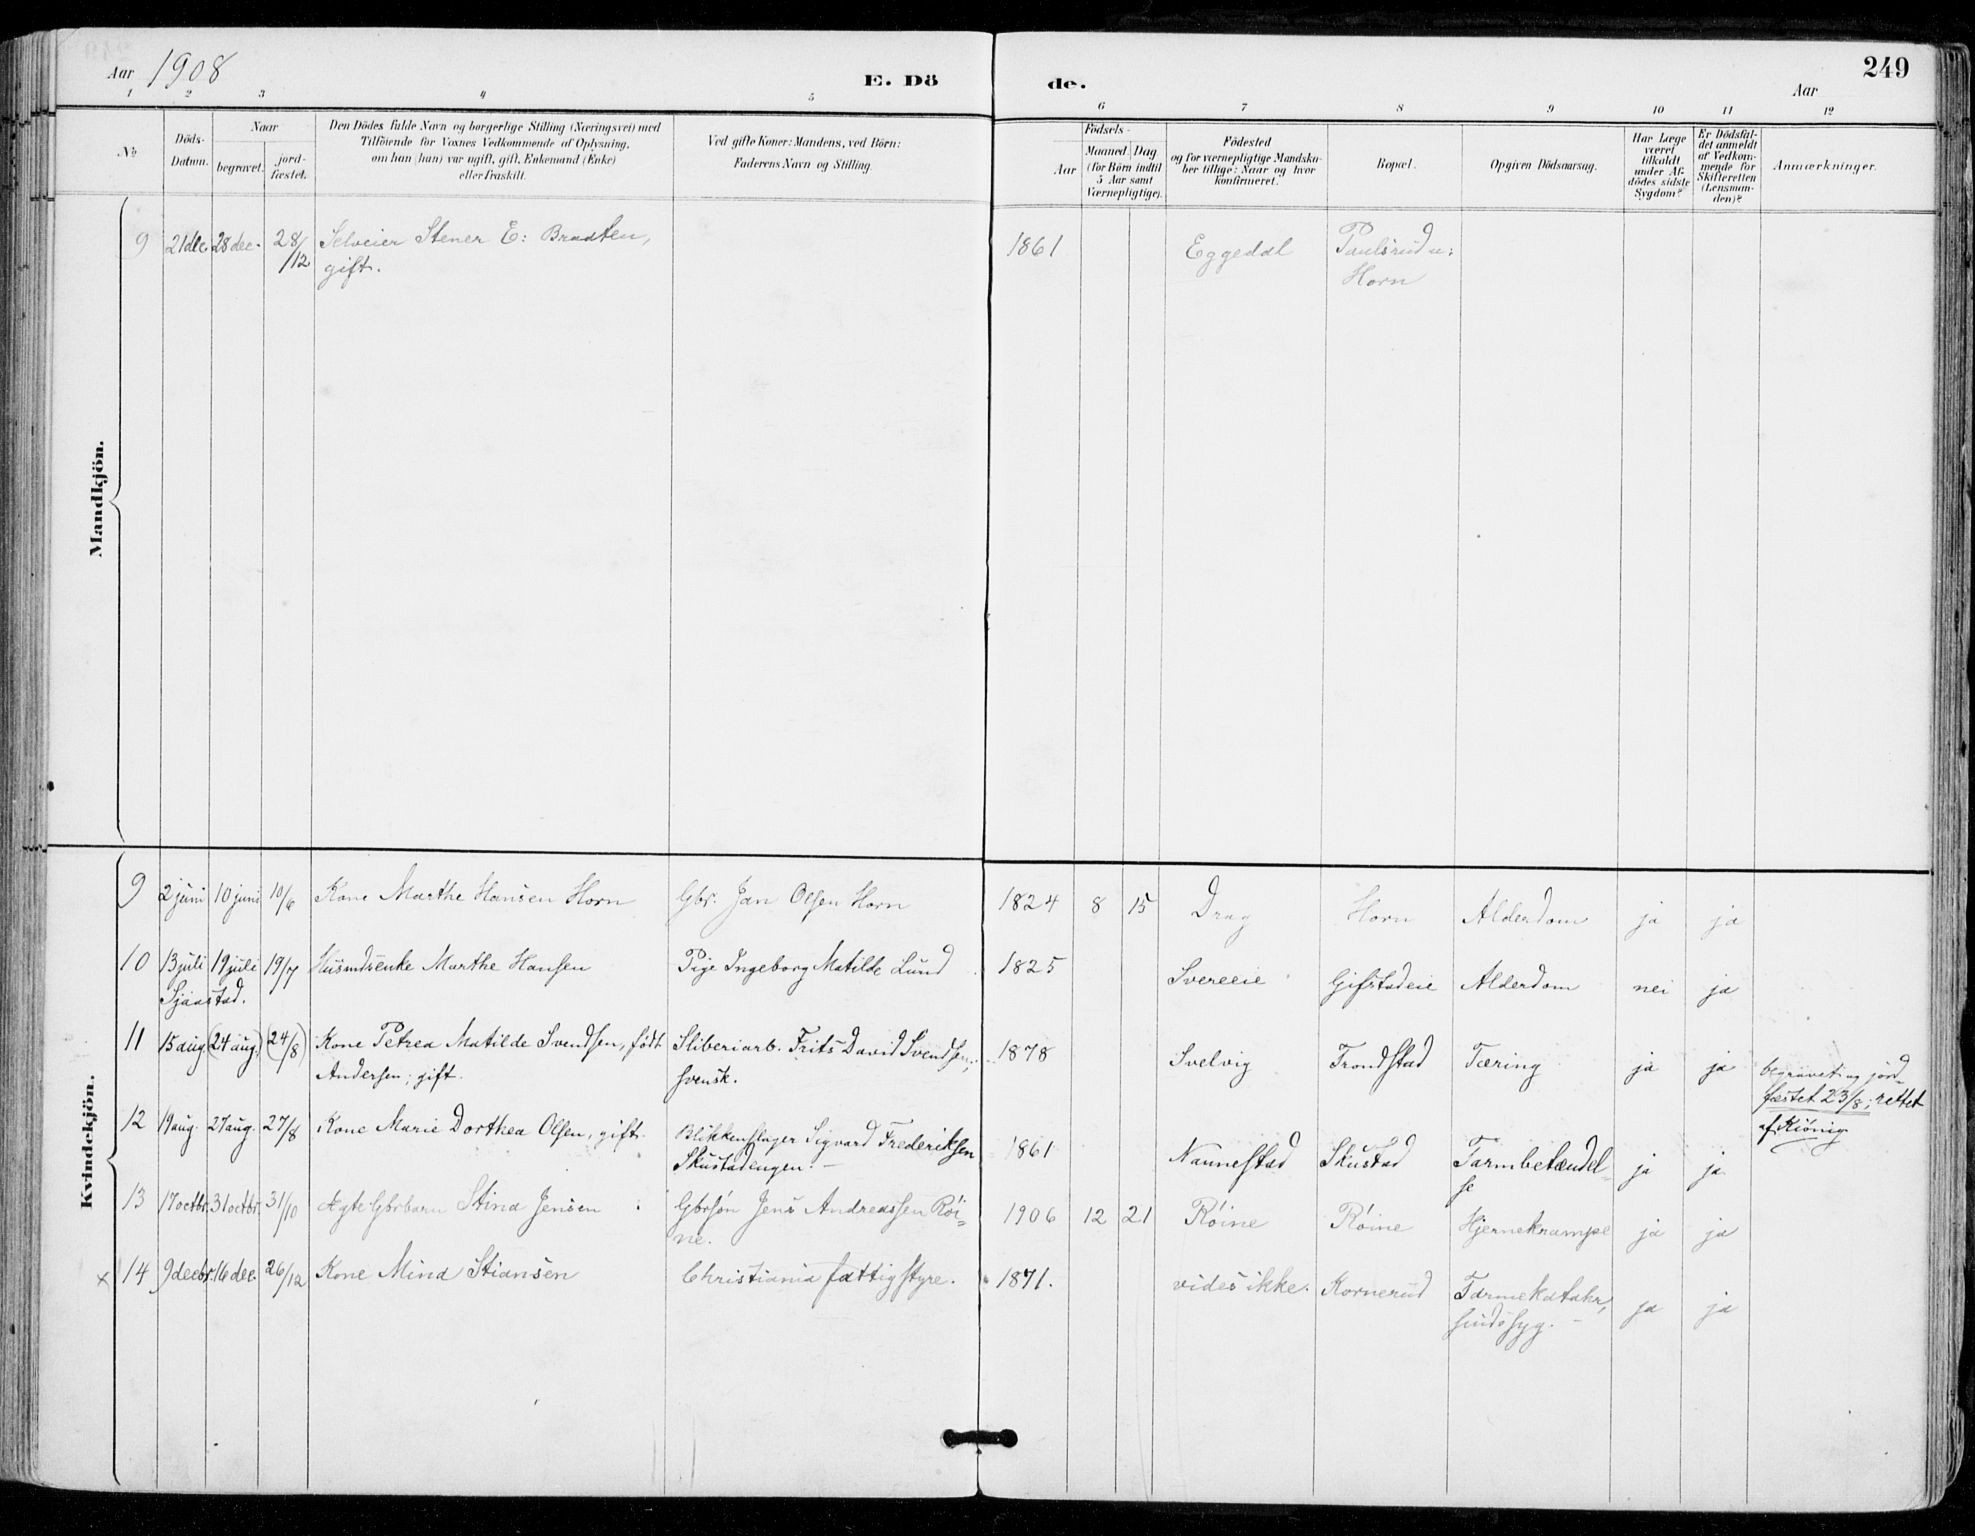 Aar 1908
E. Dö
de.
Aar
249
1 2 3 4 5 6 7 8 9 10 11 12
No
Döds-
Datum.
Naar
begravet.
jord-
fæstet.
Den Dödes fulde Navn og borgerlige Stilling (Næringsvei) med
Tilföiende for Voxnes Vedkommende af Oplysning,
om han (hun) var ugift, gift, Enkemand (Enke)
eller fraskilt.
Ved gifte Koner: Mandens, ved Börn:
Faderens Navn og Stilling.
Födsels-
Aar
Maaned. Dag
(for Börn indtil
5 Aar samt
Værnepligtige).
Födested
og for værnepligtige Mandska-
ber tillige: Naar og hvor
konfirmeret.
Bopæl.
Opgiven Dödsaarsag.
Har Læge
været
tilkaldt
under Af-
dödes sidste
Sygdom?
Er Dödsfal-
det anmeldt
af Vedkom-
mende for
Skifteretten
(Lensman-
den)?
Anmærkninger.
Mandkjön.
9 21 dec. 28 dec. 28/12 Selveier Stener E: Braaten, 1861 Eggedal Paulsrud u:
gift. Horn
Kvindekjön.
9 2 juni 10 juni 10/6 Kone Marthe Hansen Horn Gbr. Jan Olsen Horn 1824 8 15 Drag Horn Alderdom ja ja
10 13 juli 19 juli 19/7 Husmdsenke Marthe Hansen Pige Ingeborg Matilde Lund 1825 Svereeie Gifstadeie Alderdom nei ja
Sjaastad.
11 15 aug. (24 aug.) (24/8) Kone Petrea Matilde Svendsen, født Sliberiarb. Frits David Svendsen, 1878 Svelvig Trondstad Tæring ja ja begravet og jord-
Andersen; gift. svensk. fæstet 23/8; rettet
af Kiönig
12 19 aug. 27 aug. 27/8 Kone Marie Dorthea Olsen, gift. Blikkenslager Sigvard Frederiksen 1861 Nannestad Skustad Tarmbetændel-
Skustadengen. se ja ja
13 17 octbr. 31 octbr. 31/10 Ægte Gbrbarn Stina Jensen Gbrsøn Jens Andreassen Røi- 1906 12 21 Røine Røine Hjernekrampe ja ja
ne.
x 14 9 decbr. 16 dec. 26/12 Kone Mina Stiansen Christiania fattigstyre. 1871. vides ikke. Kornerud Tarmekatahr, ja ja
sindssyg.